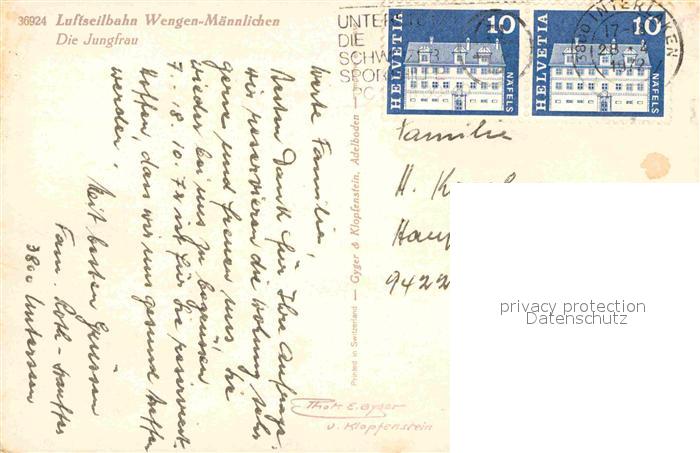 36924 Luftseilbahn Wengen-Männlichen
Die Jungfrau
UNTER
DIE
SCHW
SPOR
HELVETIA 10 NÄFELS
HELVETIA 10 NÄFELS
3800 INTERLAKEN
1972
Werte Familie,
Besten Dank für Ihre Anfrage.
Wir reservieren die Wohnung sehr
gerne und freuen uns Sie
wieder bei uns zu begrüssen
7. - 18. 10. 72 ist für Sie reserviert.
Hoffen, dass wir uns gesund treffen
werden.
Mit besten Grüssen
Fam. Roth-
3800 Unterseen
Printed in Switzerland — Gyger & Klopfenstein, Adelboden
Familie
H.
9422
Phot. E. Gyger
u. Klopfenstein
privacy protection
Datenschutz